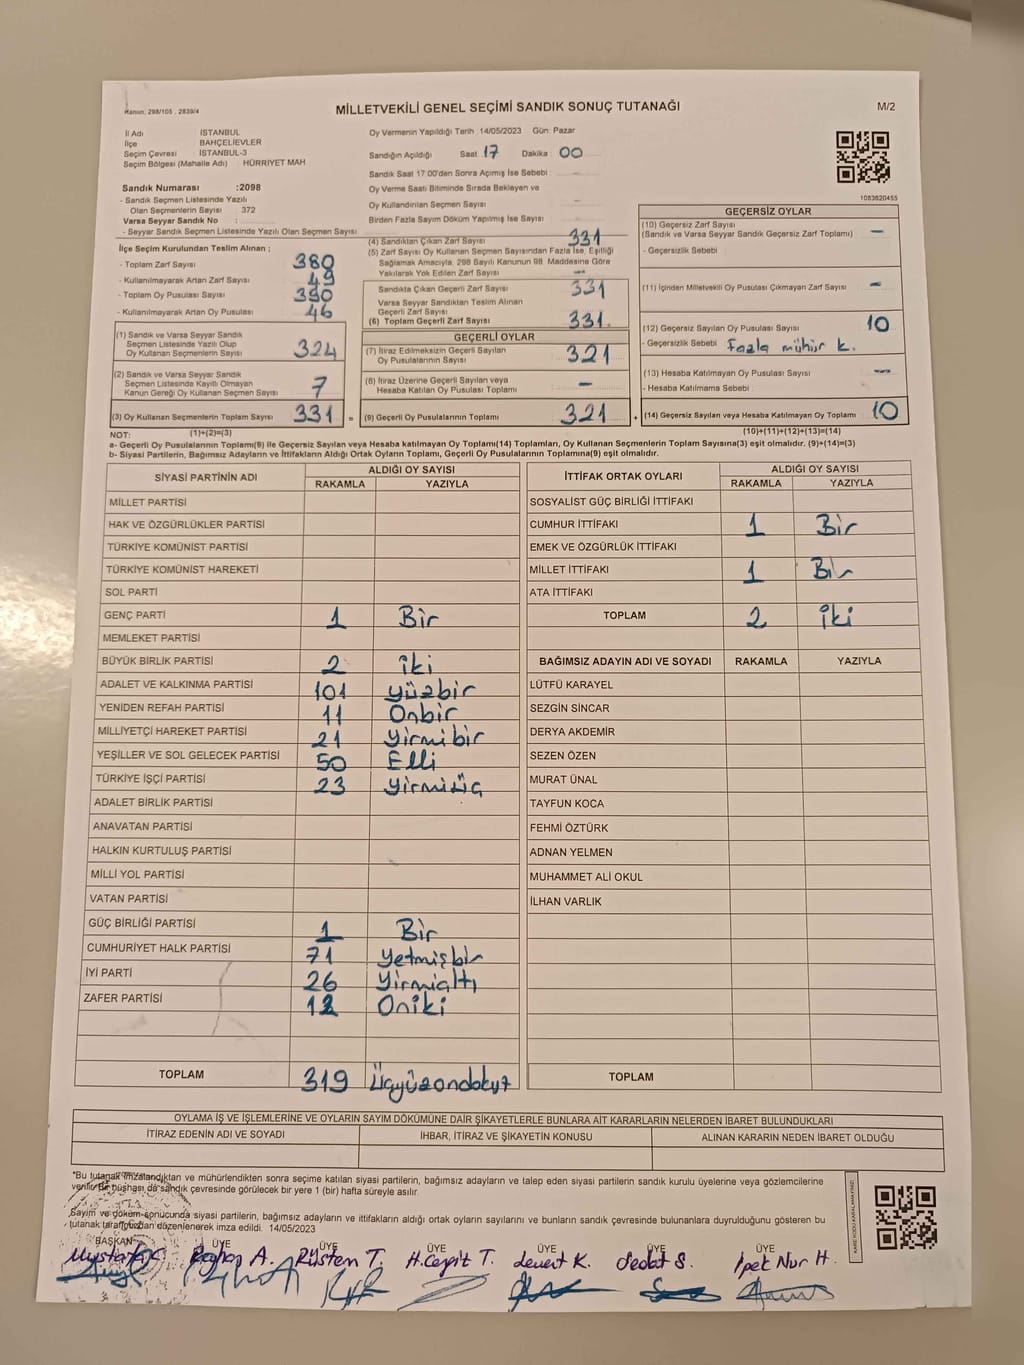 Kanun, 298/105 , 2839/4
MİLLETVEKİLİ GENEL SEÇİMİ SANDIK SONUÇ TUTANAĞI
M/2
İl Adı İSTANBUL
İlçe BAHÇELİEVLER
Seçim Çevresi İSTANBUL-3
Seçim Bölgesi (Mahalle Adı) : HÜRRİYET MAH
Sandık Numarası :2098
- Sandık Seçmen Listesinde Yazılı
Olan Seçmenlerin Sayısı : 372
Varsa Seyyar Sandık No :
- Seyyar Sandık Seçmen Listesinde Yazılı Olan Seçmen Sayısı :
Oy Vermenin Yapıldığı Tarih :14/05/2023 Gün: Pazar
Sandığın Açıldığı Saat 17 Dakika : 00
Sandık Saat 17:00'den Sonra Açımış İse Sebebi : -
Oy Verme Saati Bitiminde Sırada Bekleyen ve
Oy Kullandırılan Seçmen Sayısı : -
Birden Fazla Sayım Döküm Yapılmış İse Sayısı : -
1083820455
İlçe Seçim Kurulundan Teslim Alınan ;
- Toplam Zarf Sayısı : 380
- Kullanılmayarak Artan Zarf Sayısı : 49
- Toplam Oy Pusulası Sayısı : 390
- Kullanılmayarak Artan Oy Pusulası : 46
(1) Sandık ve Varsa Seyyar Sandık
Seçmen Listesinde Yazılı Olup
Oy Kullanan Seçmenlerin Sayısı : 324
(2) Sandık ve Varsa Seyyar Sandık
Seçmen Listesinde Kayıtlı Olmayan
Kanun Gereği Oy Kullanan Seçmen Sayısı : 7
(3) Oy Kullanan Seçmenlerin Toplam Sayısı : 331
(4) Sandıktan Çıkan Zarf Sayısı : 331
(5) Zarf Sayısı Oy Kullanan Seçmen Sayısından Fazla İse, Eşitliği
Sağlamak Amacıyla, 298 Sayılı Kanunun 98. Maddesine Göre
Yakılarak Yok Edilen Zarf Sayısı : -
Sandıkta Çıkan Geçerli Zarf Sayısı : 331
Varsa Seyyar Sandıktan Teslim Alınan
Geçerli Zarf Sayısı : -
(6) Toplam Geçerli Zarf Sayısı : 331
GEÇERLİ OYLAR
(7) İtiraz Edilmeksizin Geçerli Sayılan
Oy Pusulalarının Sayısı : 321
(8) İtiraz Üzerine Geçerli Sayılan veya
Hesaba Katılan Oy Pusulası Toplamı : -
= (9) Geçerli Oy Pusulalarının Toplamı : 321
GEÇERSİZ OYLAR
(10) Geçersiz Zarf Sayısı
(Sandık ve Varsa Seyyar Sandık Geçersiz Zarf Toplamı) : -
- Geçersizlik Sebebi :
(11) İçinden Milletvekili Oy Pusulası Çıkmayan Zarf Sayısı : -
(12) Geçersiz Sayılan Oy Pusulası Sayısı : 10
- Geçersizlik Sebebi : Fazla mühür k.
(13) Hesaba Katılmayan Oy Pusulası Sayısı : -
- Hesaba Katılmama Sebebi :
+ (14) Geçersiz Sayılan veya Hesaba Katılmayan Oy Toplamı : 10
NOT: (1)+(2)=(3) (10)+(11)+(12)+(13)=(14)
a- Geçerli Oy Pusulalarının Toplamı(9) ile Geçersiz Sayılan veya Hesaba katılmayan Oy Toplamı(14) Toplamları, Oy Kullanan Seçmenlerin Toplam Sayısına(3) eşit olmalıdır. (9)+(14)=(3)
b- Siyasi Partilerin, Bağımsız Adayların ve İttifakların Aldığı Oyların Toplamı, Geçerli Oy Pusulalarının Toplamına(9) eşit olmalıdır.
SİYASİ PARTİNİN ADI ALDIĞI OY SAYISI
RAKAMLA YAZIYLA
MİLLET PARTİSİ
HAK VE ÖZGÜRLÜKLER PARTİSİ
TÜRKİYE KOMÜNİST PARTİSİ
TÜRKİYE KOMÜNİST HAREKETİ
SOL PARTİ
GENÇ PARTİ 1 Bir
MEMLEKET PARTİSİ
BÜYÜK BİRLİK PARTİSİ 2 iki
ADALET VE KALKINMA PARTİSİ 101 Yüzbir
YENİDEN REFAH PARTİSİ 11 Onbir
MİLLİYETÇİ HAREKET PARTİSİ 21 Yirmi bir
YEŞİLLER VE SOL GELECEK PARTİSİ 50 Elli
TÜRKİYE İŞÇİ PARTİSİ 23 Yirmiüç
ADALET BİRLİK PARTİSİ
ANAVATAN PARTİSİ
HALKIN KURTULUŞ PARTİSİ
MİLLİ YOL PARTİSİ
VATAN PARTİSİ
GÜÇ BİRLİĞİ PARTİSİ 1 Bir
CUMHURİYET HALK PARTİSİ 71 Yetmişbir
İYİ PARTİ 26 Yirmialtı
ZAFER PARTİSİ 12 Oniki
TOPLAM 319 Üçyüzondokuz
İTTİFAK ORTAK OYLARI ALDIĞI OY SAYISI
RAKAMLA YAZIYLA
SOSYALİST GÜÇ BİRLİĞİ İTTİFAKI
CUMHUR İTTİFAKI 1 Bir
EMEK VE ÖZGÜRLÜK İTTİFAKI
MİLLET İTTİFAKI 1 Bir
ATA İTTİFAKI
TOPLAM 2 iki
BAĞIMSIZ ADAYIN ADI VE SOYADI RAKAMLA YAZIYLA
LÜTFÜ KARAYEL
SEZGİN SİNCAR
DERYA AKDEMİR
SEZEN ÖZEN
MURAT ÜNAL
TAYFUN KOCA
FEHMİ ÖZTÜRK
ADNAN YELMEN
MUHAMMET ALİ OKUL
İLHAN VARLIK
TOPLAM
OYLAMA İŞ VE İŞLEMLERİNE VE OYLARIN SAYIM DÖKÜMÜNE DAİR ŞİKAYETLERLE BUNLARA AİT KARARLARIN NELERDEN İBARET BULUNDUKLARI
İTİRAZ EDENİN ADI VE SOYADI İHBAR, İTİRAZ VE ŞİKAYETİN KONUSU ALINAN KARARIN NEDEN İBARET OLDUĞU
*Bu tutanak imzalandıktan ve mühürlendikten sonra seçime katılan siyasi partilerin, bağımsız adayların ve talep eden siyasi partilerin sandık kurulu üyelerine veya gözlemcilerine
verilir. Bir nüshası da sandık çevresinde görülecek bir yere 1 (bir) hafta süreyle asılır.
Sayım ve döküm sonucunda siyasi partilerin, bağımsız adayların ve ittifakların aldığı ortak oyların sayılarını ve bunların sandık çevresinde bulunanlara duyrulduğunu gösteren bu
tutanak tarafımızdan düzenlenerek imza edildi. 14/05/2023
BAŞKAN ÜYE ÜYE ÜYE ÜYE ÜYE ÜYE
Rüstem T. Levent K. Sedat S. İpek Nur H.